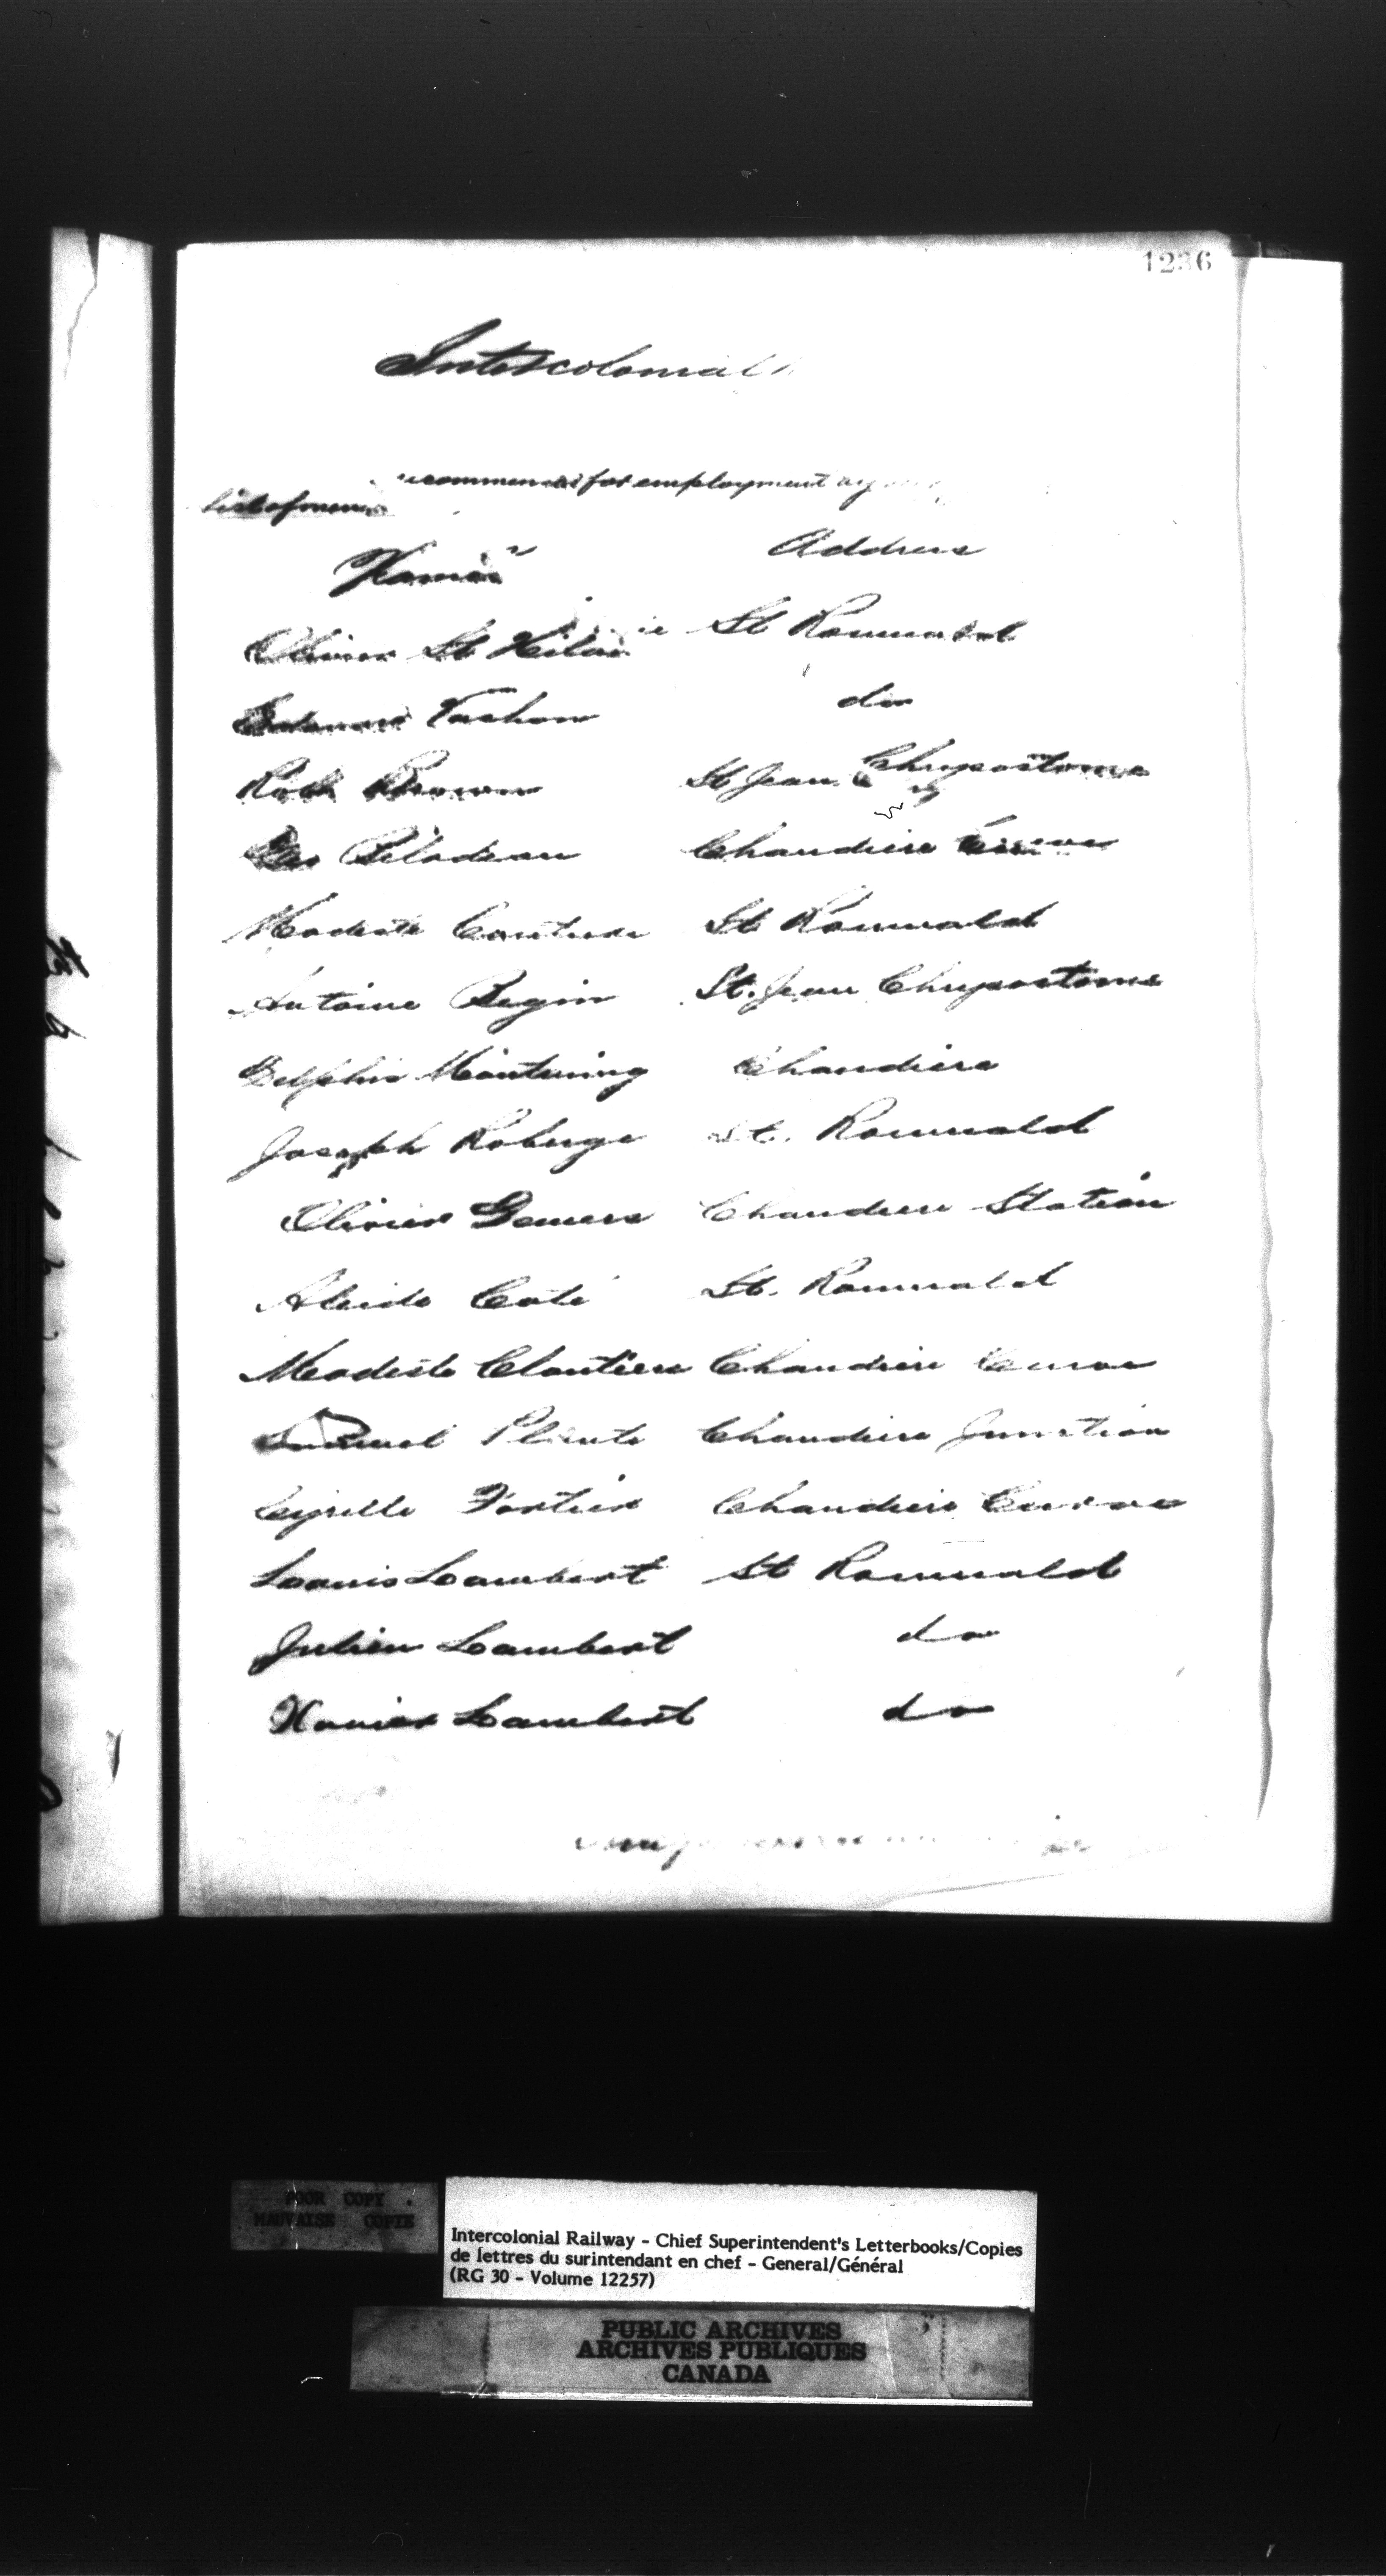 1236
Intercolonial
List of men recommended for employment by
Name Address
Olivier St Hilaire St Romuald
Edouard Vachon do
Robt Brown St Jean Chrysostome
Geo Bilodeau Chaudiere Curve
Modeste Couture St Romuald
Antoine Begin St. Jean Chrysostome
Delphis Montminy Chaudiere
Joseph Roberge St. Romuald
Olivier Demers Chaudiere Station
Alcide Coté St. Romuald
Modeste Cloutiere Chaudiere Curve
Samuel Plante Chaudiere Junction
Cyrille Fortier Chaudiere Curve
Louis Lambert St Romuald
Julien Lambert do
Xavier Lambert do
POOR COPY
MAUVAISE COPIE
Intercolonial Railway - Chief Superintendent's Letterbooks/Copies
de lettres du surintendant en chef - General/Général
(RG 30 - Volume 12257)
PUBLIC ARCHIVES
ARCHIVES PUBLIQUES
CANADA